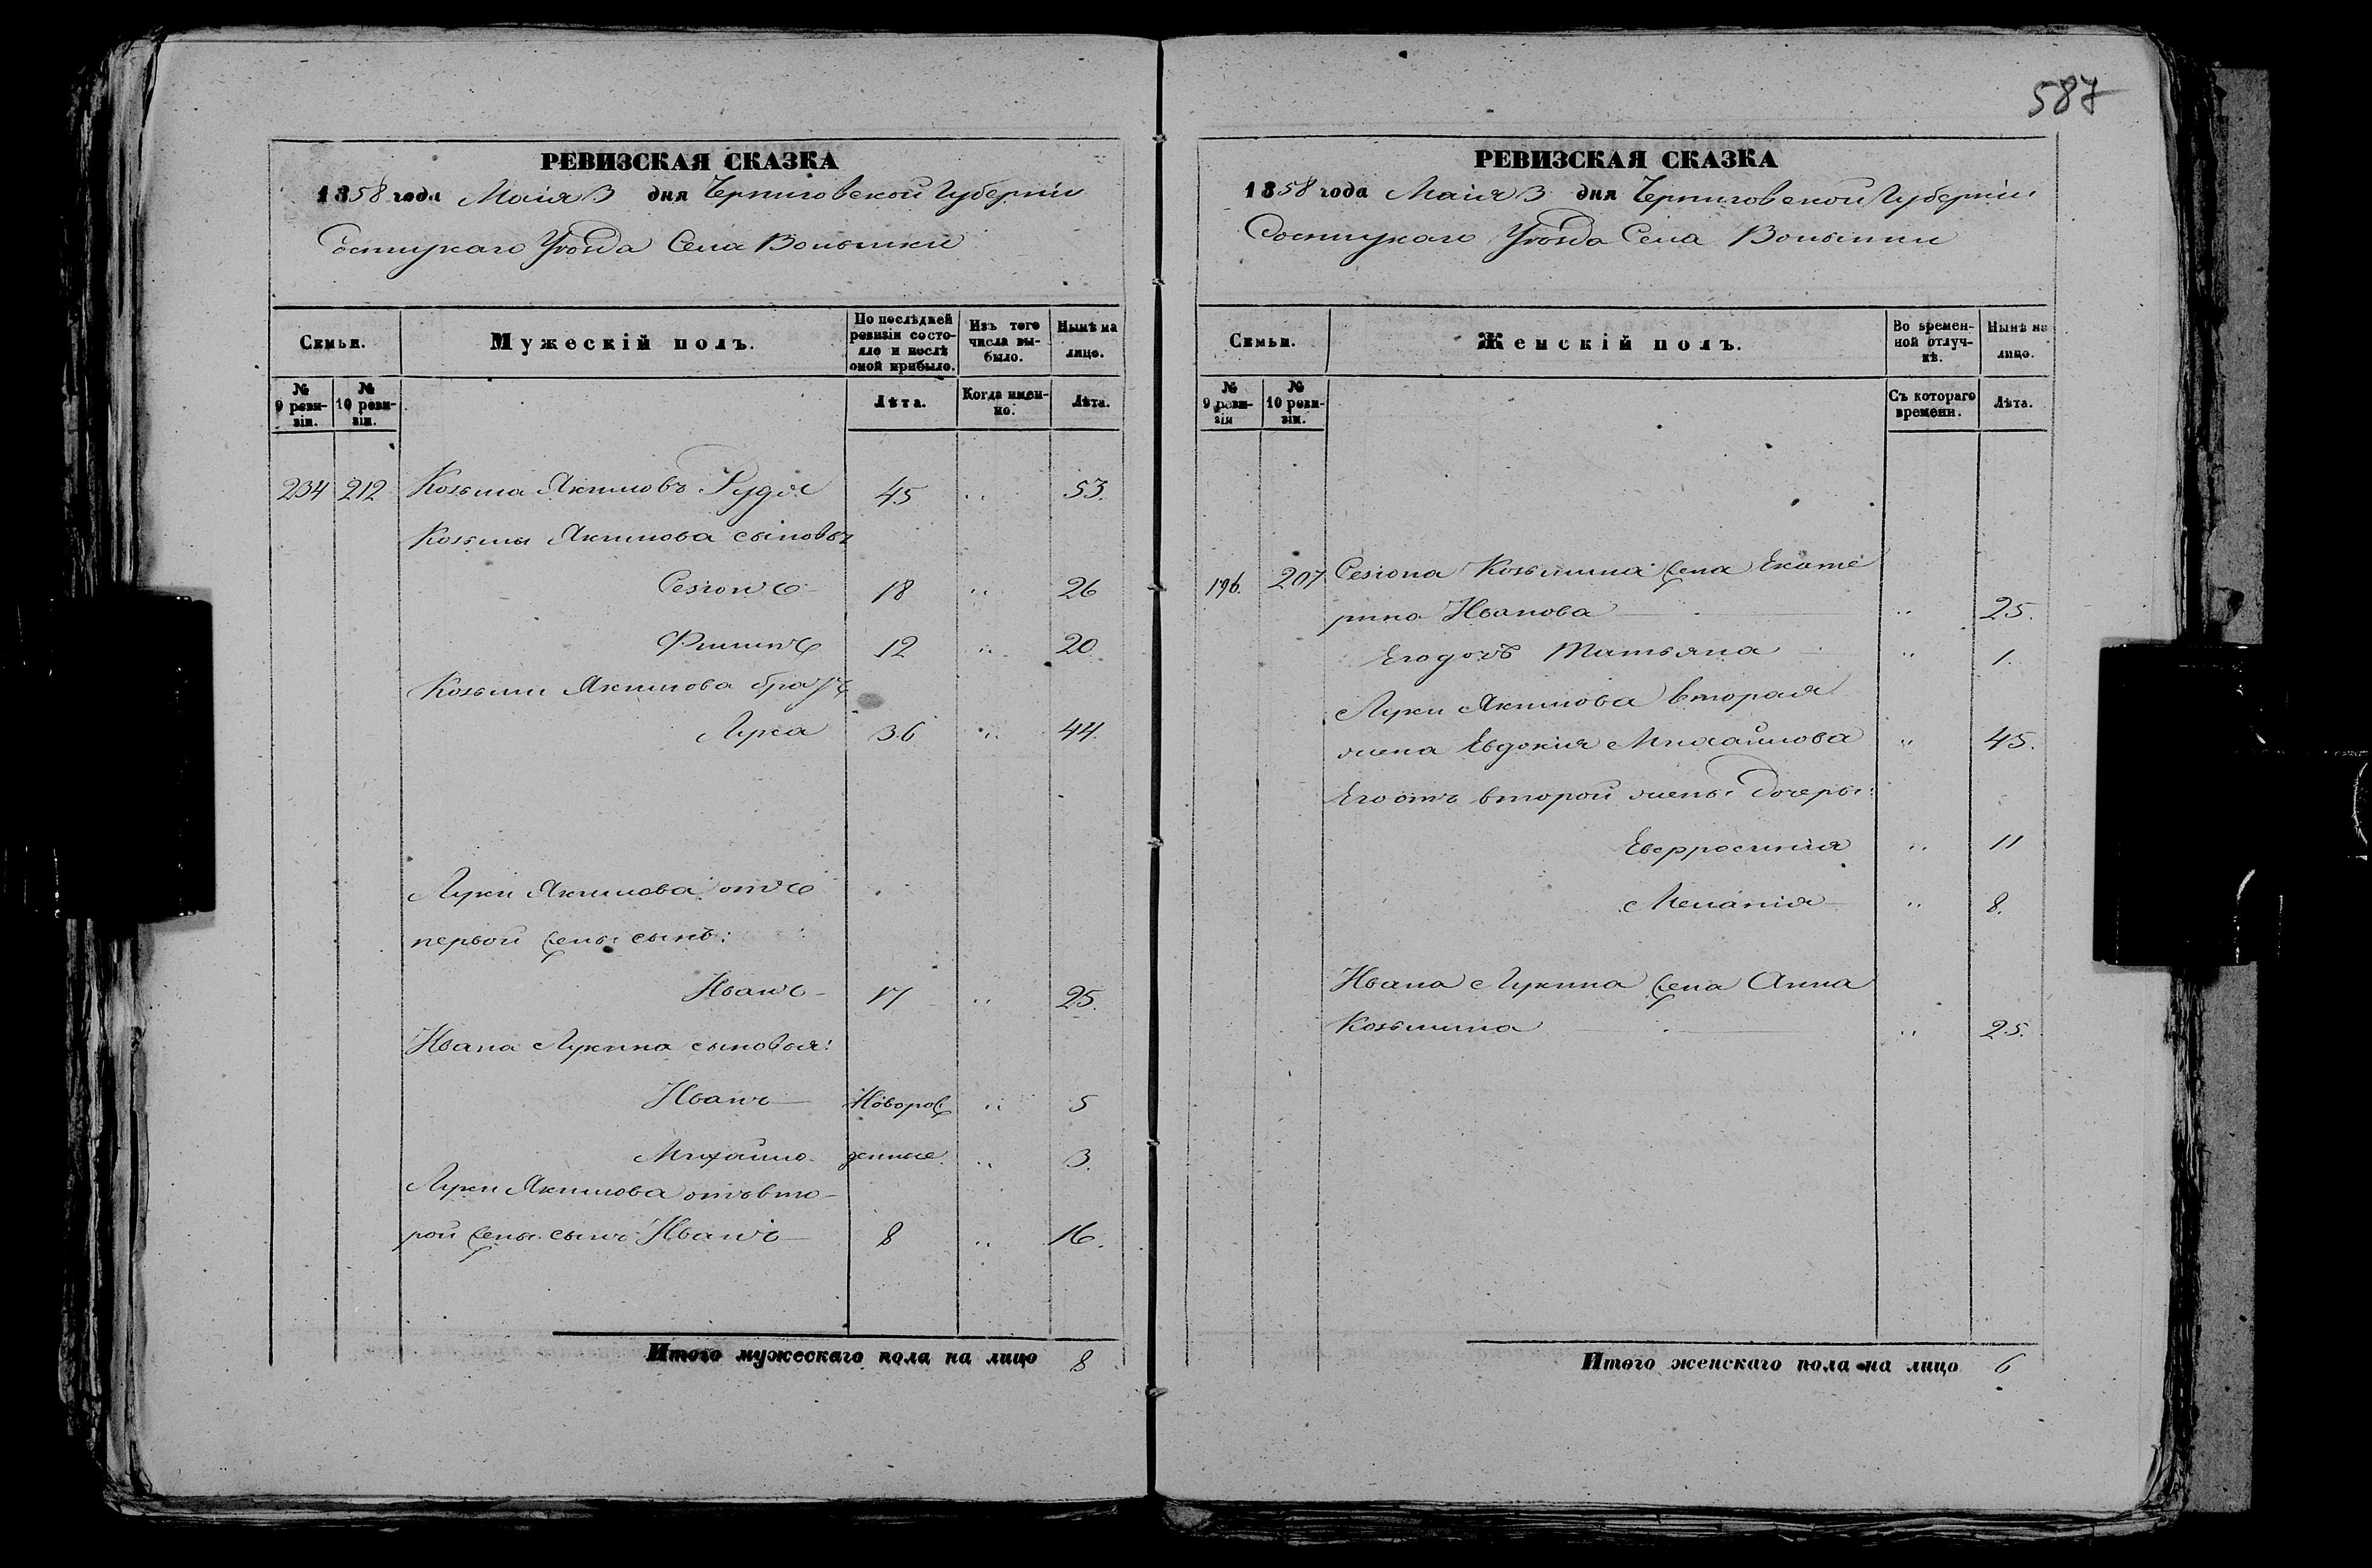 587
РЕВИЗСКАЯ СКАЗКА
1858 года Маія 3 дня Черниговской Губерніи
Сосницкаго Уѣзда Села Волынки
Семьи.
Мужескій полъ.
По послѣдней ревизіи состояло и послѣ оной прибыло.
Изъ того числа выбыло.
Нынѣ на лицо.
№ 9 ревизіи.
№ 10 ревизіи.
Лѣта.
Когда именно.
Лѣта.
234 212 Козьма Якимовъ Рудя 45 " 53.
Козьмы Якимова сыновья
18 " 26
Филипъ 12 " 20
Козьмы Якимова братъ
Лука 36 " 44.
Луки Якимова отъ
первой жены сынъ:
Иванъ 17 " 25.
Ивана Лукина сыновья:
Иванъ Новорож " 5
Михайло денные " 3.
Луки Якимова отъ вто-
рой жены сынъ Иванъ 8 " 16.
Итого мужескаго пола на лицо 8
РЕВИЗСКАЯ СКАЗКА
1858 года Маія 3 дня Черниговской Губерніи
Сосницкаго Уѣзда Села Волынки
Семьи.
Женскій полъ.
Во временной отлучкѣ.
Нынѣ на лицо.
№ 9 ревизіи
№ 10 ревизіи.
Съ котораго времени.
Лѣта.
196. 207 Козьмина жена Екате
рина Иванова " 25.
Его дочь Татьяна " 1.
Луки Якимова вторая
жена Евдокія Михайлова " 45.
Его отъ второй жены дочеры:
Евфросинія " 11
Меланія " 8.
Ивана Лукина жена Анна
Козьмина " 25.
Итого женскаго пола на лицо 6